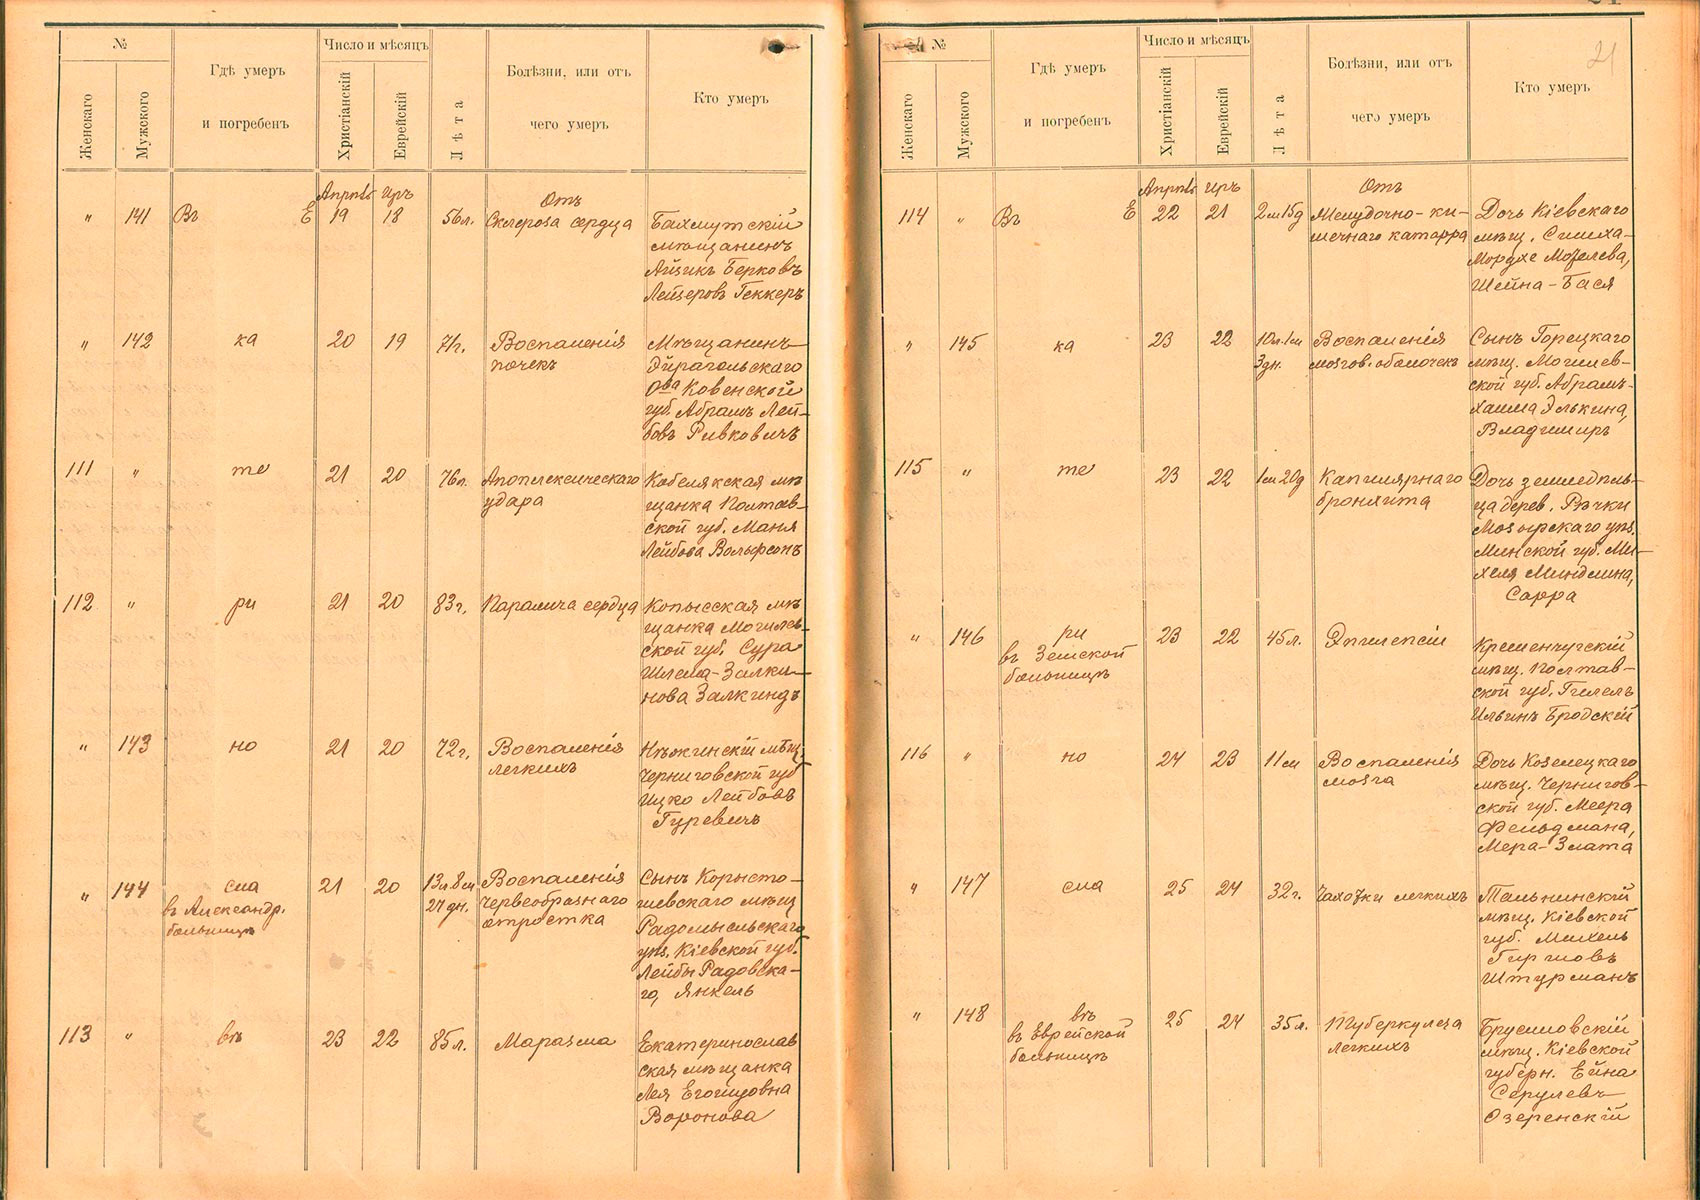 №
Женскаго
Мужского
Гдѣ умеръ
и погребенъ
Число и мѣсяцъ
Христіанскій
Еврейскій
Лѣта
Болѣзни, или отъ
чего умеръ
Кто умеръ
Апрѣль Иръ
" 141 Въ Е 19 18 56л.
Отъ
Склероза сердца
Бахмутскій
мѣщанинъ
Айзикъ Берковъ
Лейзеровъ Геккеръ
" 142 ка 20 19 71г.
Воспаленія
почекъ
Мѣщанинъ
Эйрагольскаго
Ова Ковенской
губ. Абрамъ Лей-
бовъ Ривковичъ
111 " те 21 20 76л.
Апоплексическаго
удара
Кобелякская мѣ
щанка Полтав-
ской губ. Маня
Лейбова Вольфсонъ
112 " ри 21 20 83г.
Паралича сердца
Копысская мѣ
щанка Могилев-
ской губ. Сура
Шлема-Залки-
нова Залкиндъ
" 143 но 21 20 72г.
Воспаленія
легкихъ
Нѣжинскій мѣщ.
Черниговской губ
Ицко Лейбовъ
Гуревичъ
" 144 сла
въ Александр.
больницѣ
21 20 13л 8м
27дн.
Воспаленія
червеобразнаго
отростка
Сынъ Коросты-
шевскаго мѣщ
Радомысльскаго
уѣз. Кіевской губ.
Лейбы Радовска-
го, Янкель
113 " вѣ 23 22 85л.
Маразма
Екатеринослав
ская мѣщанка
Лея
Воронова
21
№
Женскаго
Мужского
Гдѣ умеръ
и погребенъ
Число и мѣсяцъ
Христіанскій
Еврейскій
Лѣта
Болѣзни, или отъ
чего умеръ
Кто умеръ
Апрѣль Иръ
114 " Въ Е 22 21 2м15д
Отъ
Желудочно-ки-
шечнаго катарра
Дочь Кіевскаго
мѣщ. Симха-
Мордхе
Шейна-Бася
" 145 ка 23 22 10л.1м
3дн.
Воспаленія
мозгов. оболочекъ
Сынъ Горецкаго
мѣщ. Могилев-
ской губ. Абрамъ-
Хаима Элькина,
Владимиръ
115 " те 23 22 1м20д
Капилярнаго
бронхита
Дочь земледѣль-
ца дерев. Рѣчки
Мозырскаго уѣз.
Минской губ. Ми-
хеля Миндлина,
Сарра
" 146 ри
въ Земской
больницѣ
23 22 45л.
Эпилепсіи
Кременчугскій
мѣщ. Полтав-
ской губ. Гилель
Ильинъ Бродскій
116 " но 24 23 11м
Воспаленія
мозга
Дочь Козелецкаго
мѣщ. Чернигов-
ской губ. Меера
Фельдмана,
Мера-Злата
" 147 сла 25 24 32г.
Чахотки легкихъ
Тальнинскій
мѣщ. Кіевской
губ. Михель
Гиршовъ
Штурманъ
" 148 вѣ
въ Еврейской
больницѣ
25 24 35л.
Туберкулеза
легкихъ
Брусиловскій
мѣщ. Кіевской
губерн. Ейна
Срулевъ
Озеренскій